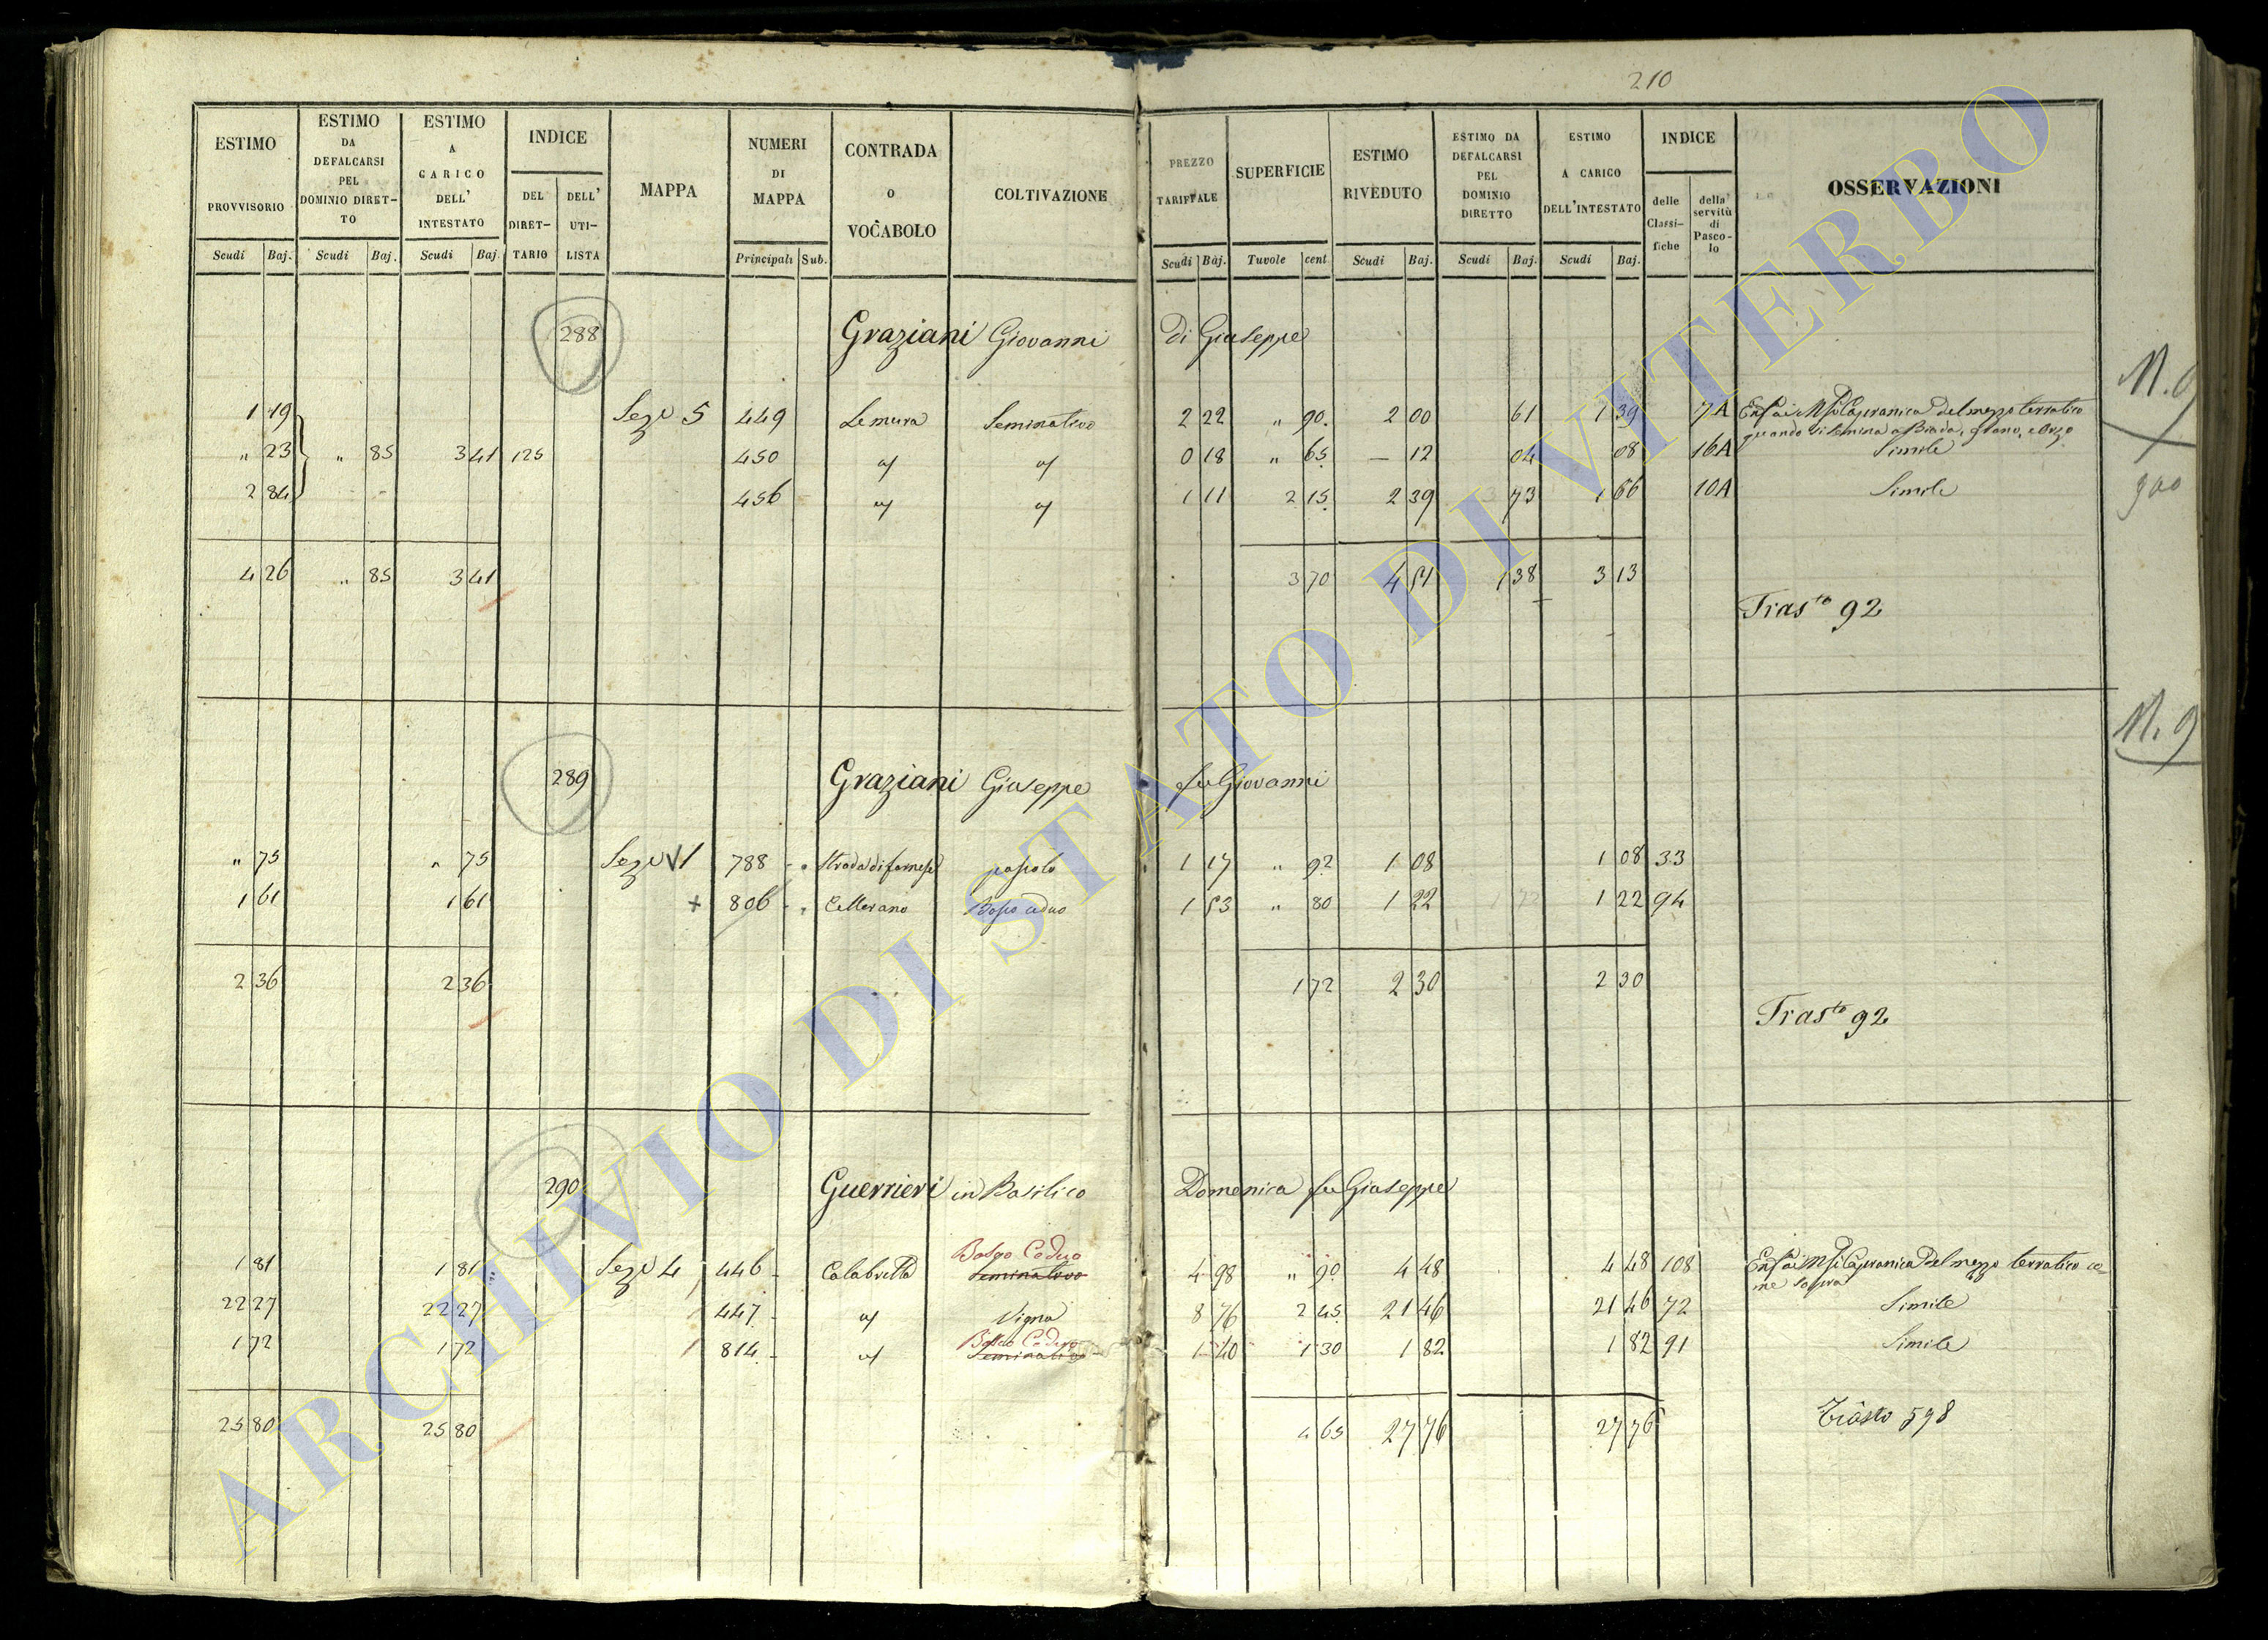 210
ESTIMO PROVVISORIO | ESTIMO DA DEFALCARSI PEL DOMINIO DIRETTO | ESTIMO A CARICO DELL' INTESTATO | INDICE | MAPPA | NUMERI DI MAPPA | CONTRADA O VOCABOLO | COLTIVAZIONE | PREZZO TARIFFALE | SUPERFICIE | ESTIMO RIVEDUTO | ESTIMO DA DEFALCARSI PEL DOMINIO DIRETTO | ESTIMO A CARICO DELL'INTESTATO | INDICE | OSSERVAZIONI
DEL DIRET-TARIO | DELL' UTI-LISTA | delle Classi-fiche | della servitù di Pasco-lo
Scudi Baj. | Scudi Baj. | Scudi Baj. | Principali Sub. | Scudi Baj. | Tavole cent | Scudi Baj. | Scudi Baj. | Scudi Baj.
288 Graziani Giovanni di Giuseppe
1 49 Sezne 5 449 Le mura Seminativo 2 22 " 90 2 00 61 1 39 7A del mezzo terratico
quando si semina a Biada, grano, e Orzo
" 23 " 85 3 41 125 450 0 18 " 65 — 12 04 08 16A Simile
2 84 456 1 11 2 15 2 39 73 1 66 10A Simile
900
4 26 " 85 3 41 3 70 4 51 1 38 3 13
Trasto 92
N. 9
289 Graziani Giuseppe fu Giovanni
" 75 " 75 Sezne VI 788 Strada di farnese pascolo 1 17 " 92 1 08 1 08 33
1 61 1 61 + 806 Cellerano Bosco ceduo 1 53 " 80 1 22 1 22 94
2 36 2 36 1 72 2 30 2 30
Trasto 92
290 Guerrieri in Basilico Domenica fu Giuseppe
Bosco Ceduo
1 81 1 81 Sezne 4 446 Calabrella Seminativo 4 98 " 90 4 48 4 48 108 del mezzo terratico co-
me sopra
22 27 22 27 447 Vigna 8 76 2 45 21 46 21 46 72 Simile
Bosco Ceduo
1 72 1 72 814 Seminativo 1 40 1 30 1 82 1 82 91 Simile
25 80 25 80 4 65 27 76 27 76 Trasto 598
ARCHIVIO DI STATO DI VITERBO